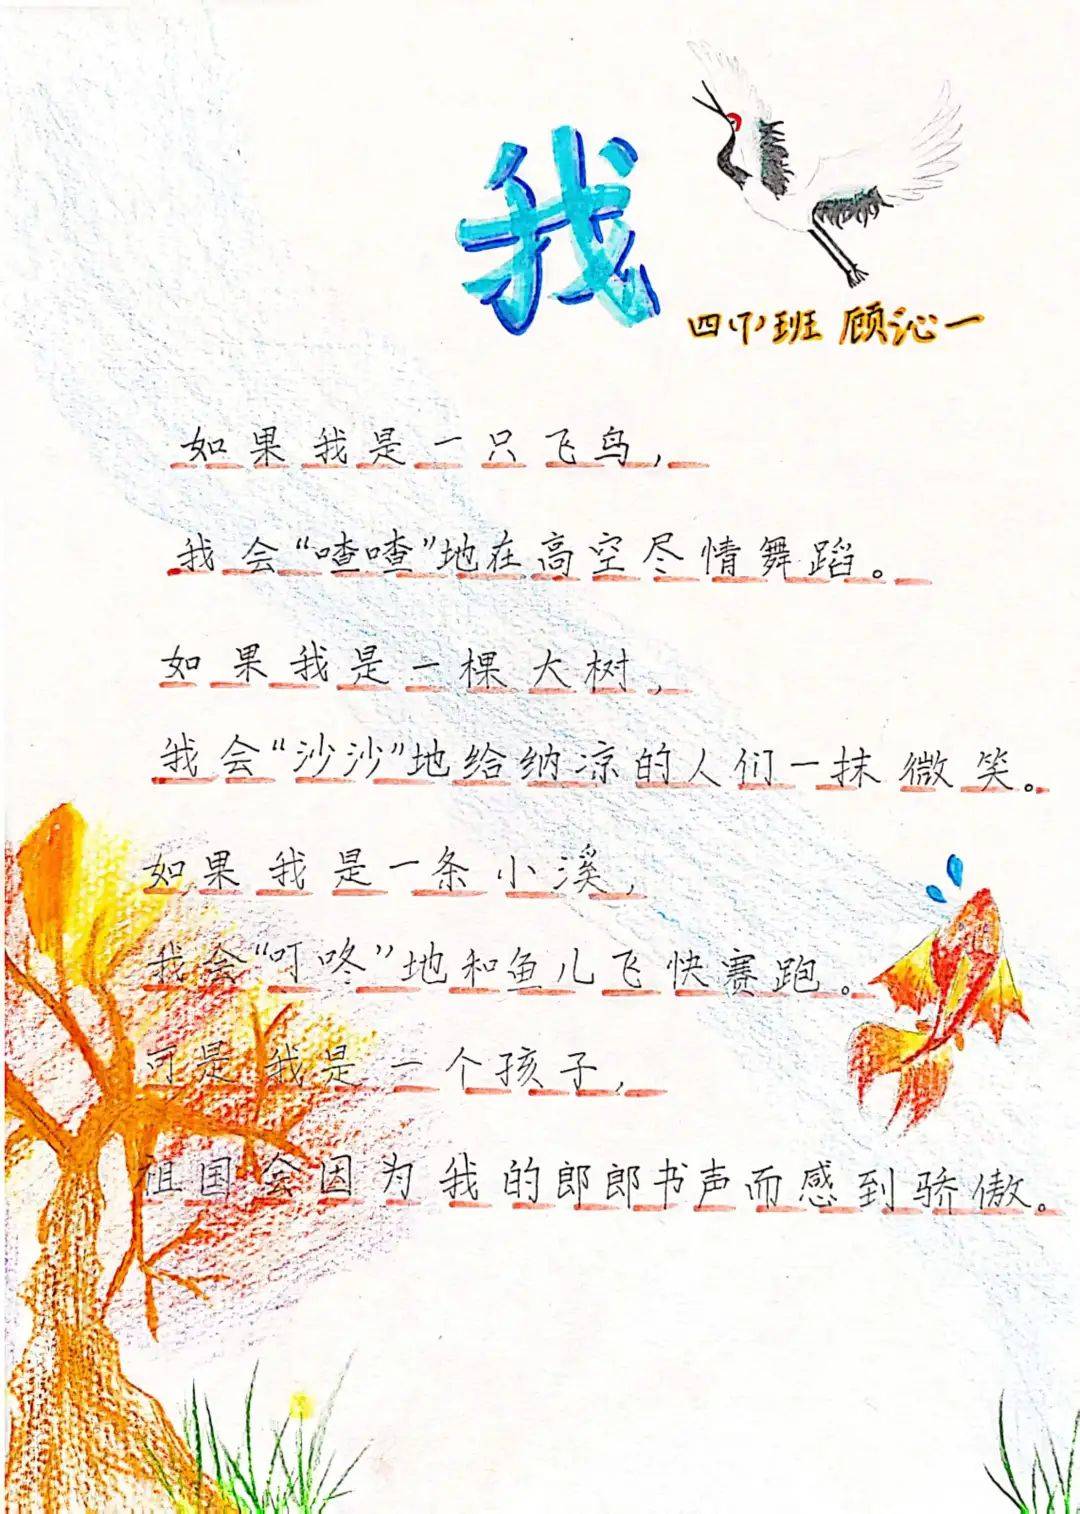 我
四(1)班 顾沁一
如果我是一只飞鸟，
我会“喳喳”地在高空尽情舞蹈。
如果我是一棵大树，
我会“沙沙”地给纳凉的人们一抹微笑。
如果我是一条小溪，
我会“叮咚”地和鱼儿飞快赛跑。
可是我是一个孩子，
祖国会因为我的郎郎书声而感到骄傲。